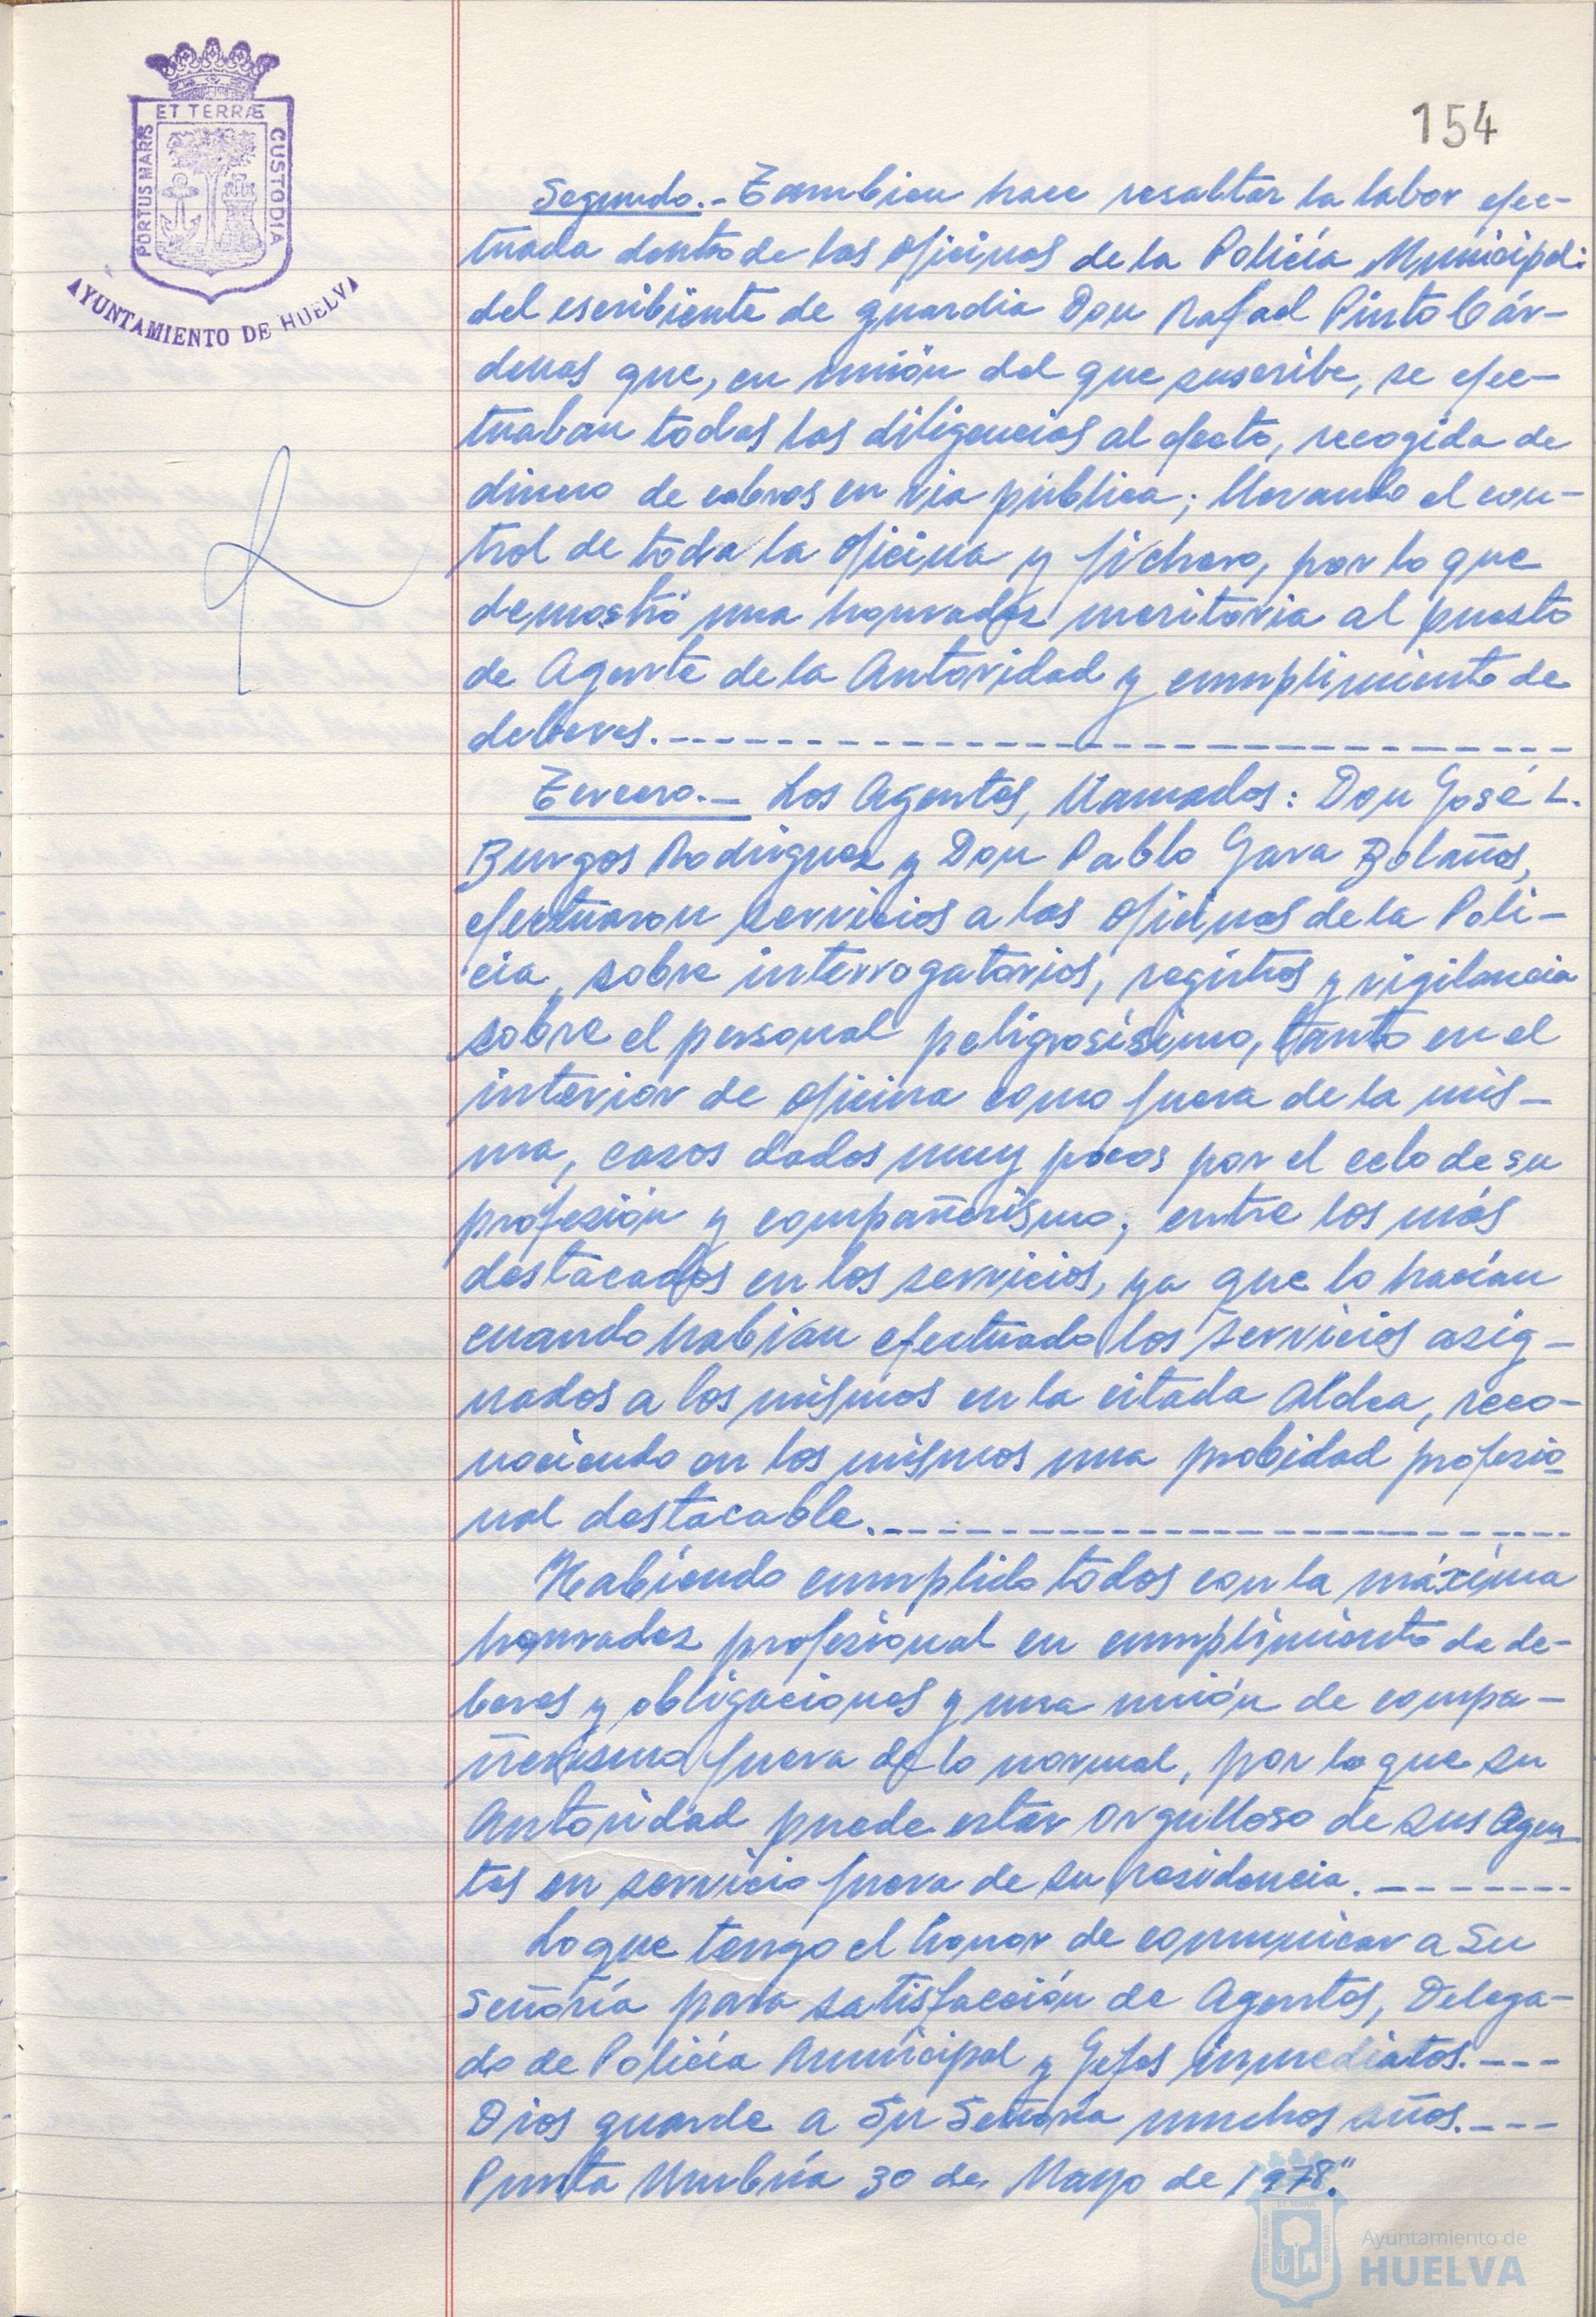 154
ET TERRÆ
PORTUS MARIS
CUSTODIA
AYUNTAMIENTO DE HUELVA
Segundo.- Tambien hace resaltar la labor efec-
tuada dentro de las oficinas de la Policía Municipal:
del escribiente de guardia Don Rafael Pinto Cár-
denas que, en unión del que suscribe, se efec-
tuaban todas las diligencias al efecto, recogida de
dinero de cobros en via pública; llevando el con-
trol de toda la oficina y fichero, por lo que
demostró una honradez meritoria al puesto
de Agente de la Autoridad y cumplimiento de
deberes.
Tercero.- Los Agentes, llamados: Don José L.
Burgos Rodriguez y Don Pablo Gava Bolaños,
efectuaron servicios a las oficinas de la Poli-
cia, sobre interrogatorios, registros y vigilancia
sobre el personal peligrosísimo, tanto en el
interior de oficina como fuera de la mis-
ma, casos dados muy pocos por el celo de su
profesión y compañerismo; entre los más
destacados en los servicios, ya que lo hacían
cuando habian efectuado los servicios asig-
nados a los mismos en la citada Aldea, reco-
nociendo en los mismos una probidad profesio-
nal destacable.
Habiendo cumplido todos con la máxima
honradez profesional en cumplimiento de de-
beres y obligaciones y una unión de compa-
ñerismo fuera de lo normal, por lo que su
Autoridad puede estar orgulloso de sus Agen-
tes en servicio fuera de su residencia.
Lo que tengo el honor de comunicar a Su
Señoría para satisfacción de Agentes, Delega-
do de Policía Municipal y Gefes inmediatos.
Dios guarde a Su Señoría muchos años.
Punta Umbría 30 de Mayo de 1978."
Ayuntamiento de
HUELVA